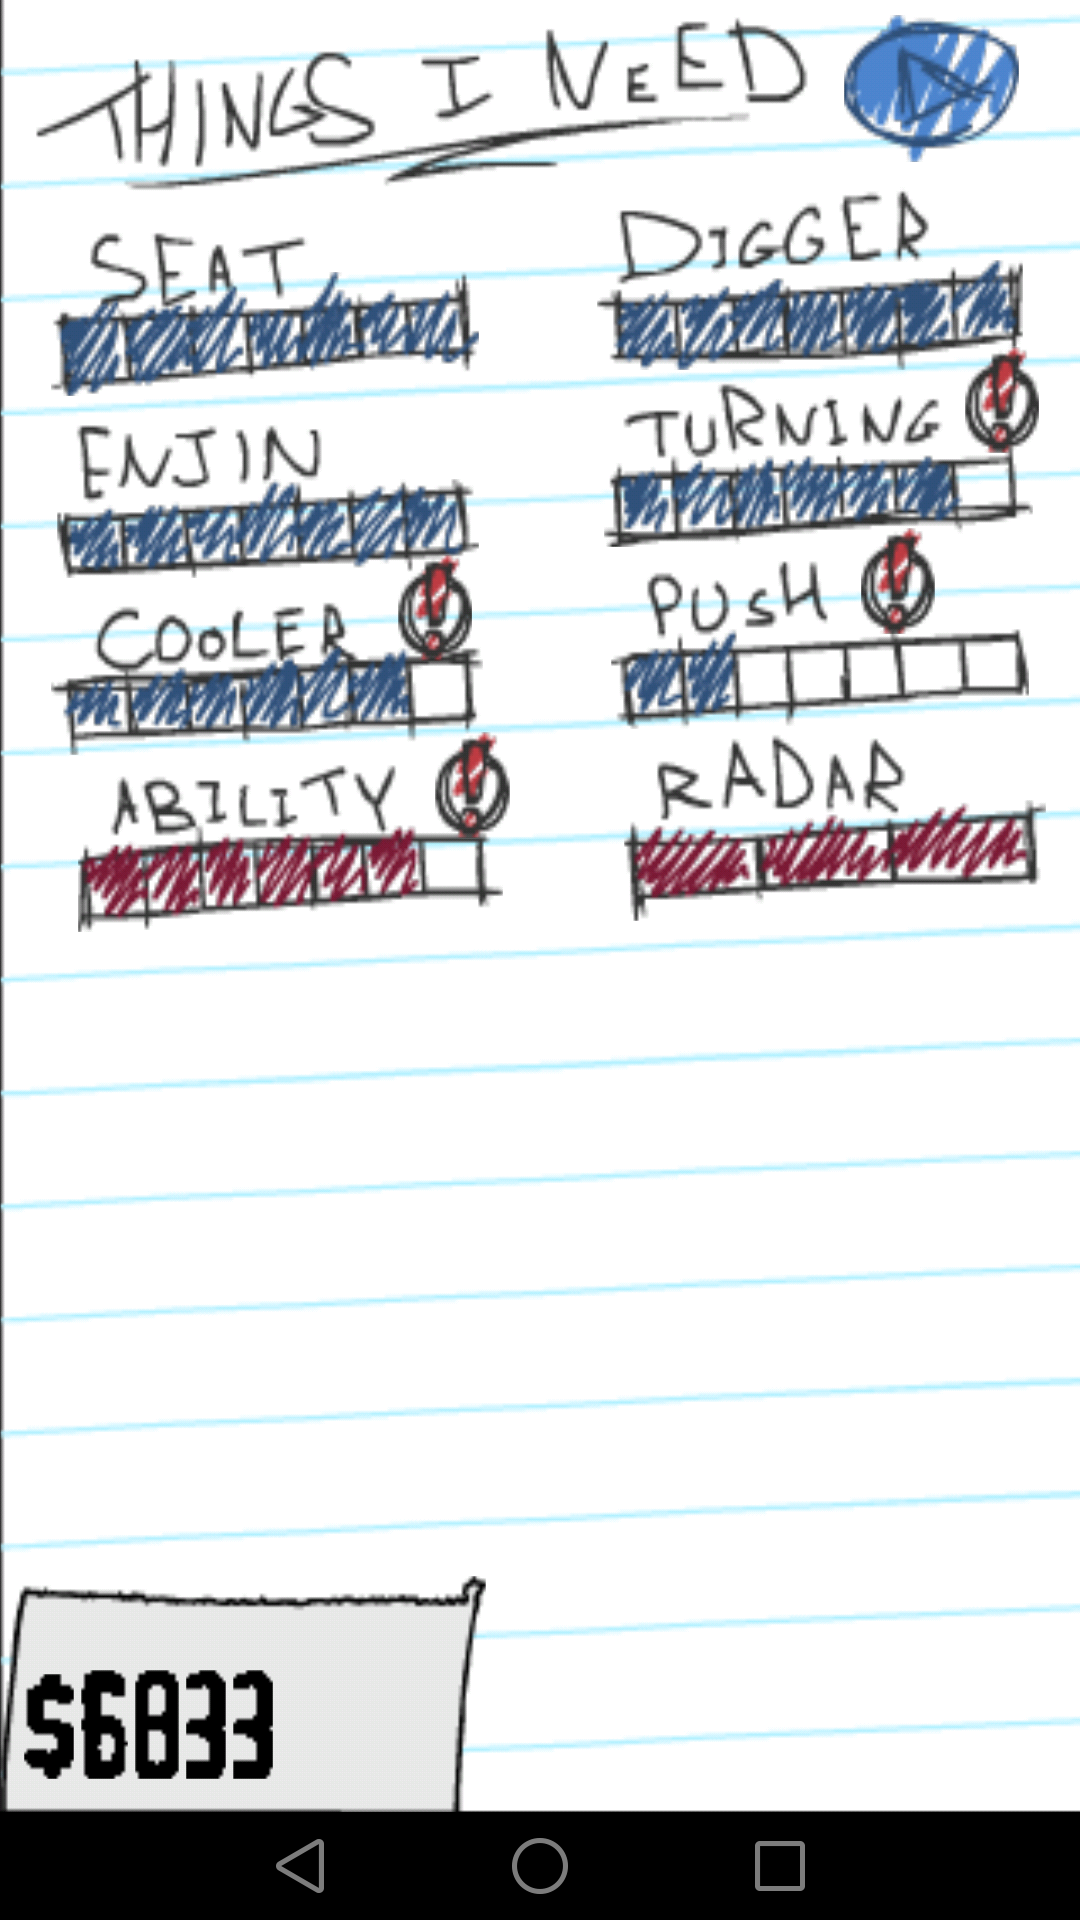 THINGS I NEED
SEAT
DIGGER
ENJIN
TURNING
COOLER
PUSH
ABILITY
RADAR
$6833